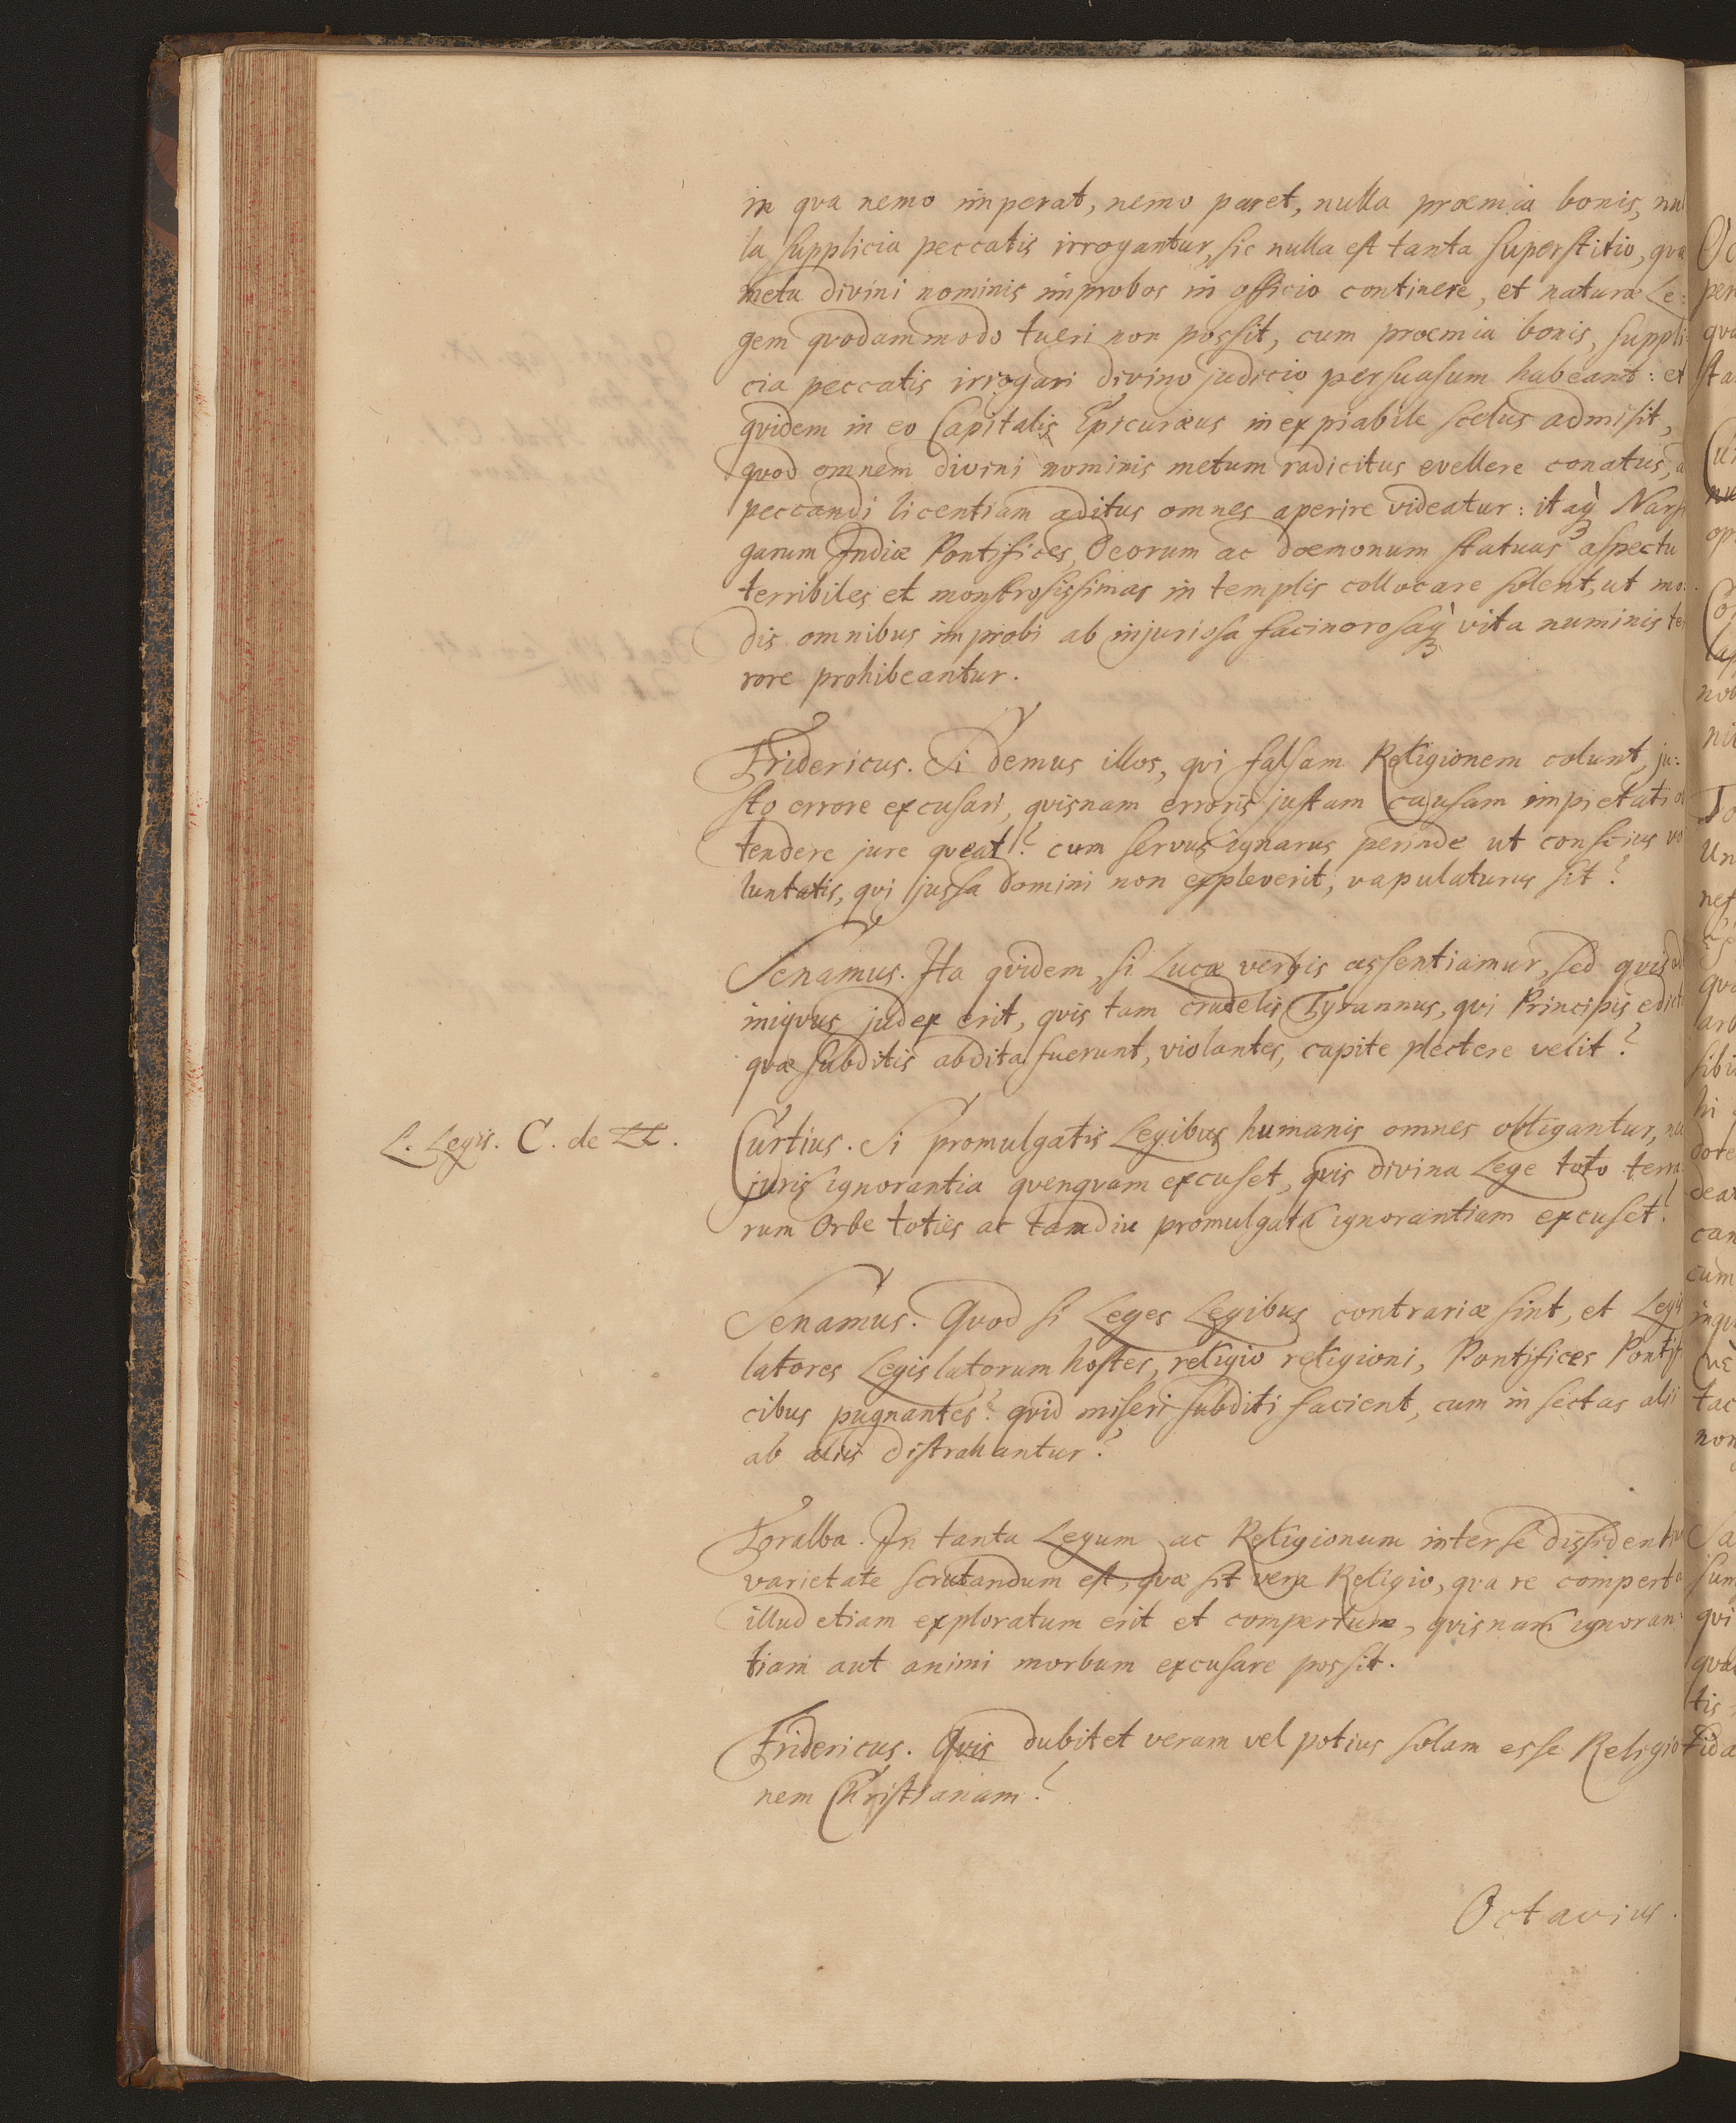 in qva nemo imperat, nemo paret, nulla præmia bonis, nul
la supplicia peccatis irrogantur, sic nulla est tanta superstitio, qvæ
metu divini nominis improbos in officio continere, et naturæ Le:
gem qvodammodo tueri non possit, cum præmia bonis, suppli:
cia peccatis irrogari divino judicio persuasum habeant: et
qvidem in eo Capitalis Epicuræus inexpiabile scelus admisit,
qvod omnem divini nominis metum radicitus evellere conatus, a
peccandi licentiam aditus omnes aperire videatur: itaq̀3 Narsi
garum Indiæ Pontifices, Deorum ac dæmonum statuas aspectu
terribiles et monstrosissimas in templis collocare solent, ut mo:
dis omnibus improbi ab injuriosa facinorosaq̀3 vita numinis ter
rore prohibeantur.
Fridericus. Si demus illos, qvi falsam Religionem colunt, ju:
sto errore excusari, qvisnam erroris justam causam impietati ob
tendere jure qveat? cum servus ignarus perinde ut conscius vo
luntatis, qvi jussa domini non expleverit, vapulaturus sit?
Senamus. Ita qvidem, si Lucæ verbis assentiamur, sed qvis ad
iniqvus judex erit, qvis tam crudelis Tyrannus, qvi Principis edicta
qvæ subditis abdita fuerunt, violantes, capite plectere velit?
L. Legis. C. de LL.
Curtius. Si promulgatis Legibus humanis omnes obligantur, nec
juris ignorantia qvenqvam excuset, qvis divina Lege toto terra
rum Orbe toties ac tamdiu promulgata ignorantiam excuset?
Senamus. Qvod si Leges Legibus contrariæ sint, et Legis
latores Legislatorum hostes, religio religioni, Pontifices Pontifi
cibus pugnantes? qvid miseri subditi facient, cum in sectas alii
ab aliis distrahantur?
Toralba. In tanta Legum ac Religionum inter se dissidentium
varietate scrutandum est, qvæ sit vera Religio, qva re comperta
illud etiam exploratum erit et compertum, qvisnam ignoran:
tiam aut animi morbum excusare possit.
Fridericus. Qvis dubitet veram vel potius solam esse Religio
nem Christianam?
Octavius.